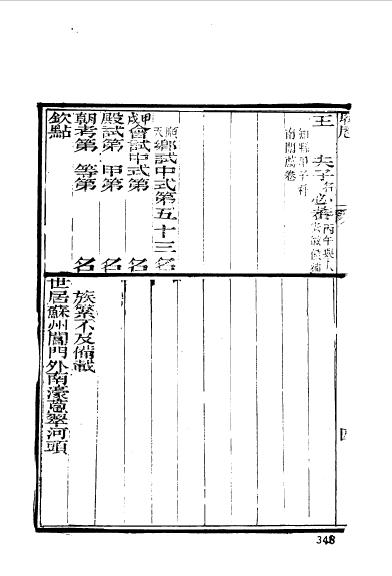 王 夫子 必蕃 丙午舉人
知縣甲子科
南闈薦卷
順天鄉試中式第五十三名
會試中式第 名
殿試第 甲第 名
朝考第 等第 名
欽點
族繁不及備載
世居蘇州閶門外南濠萬翠河頭
348